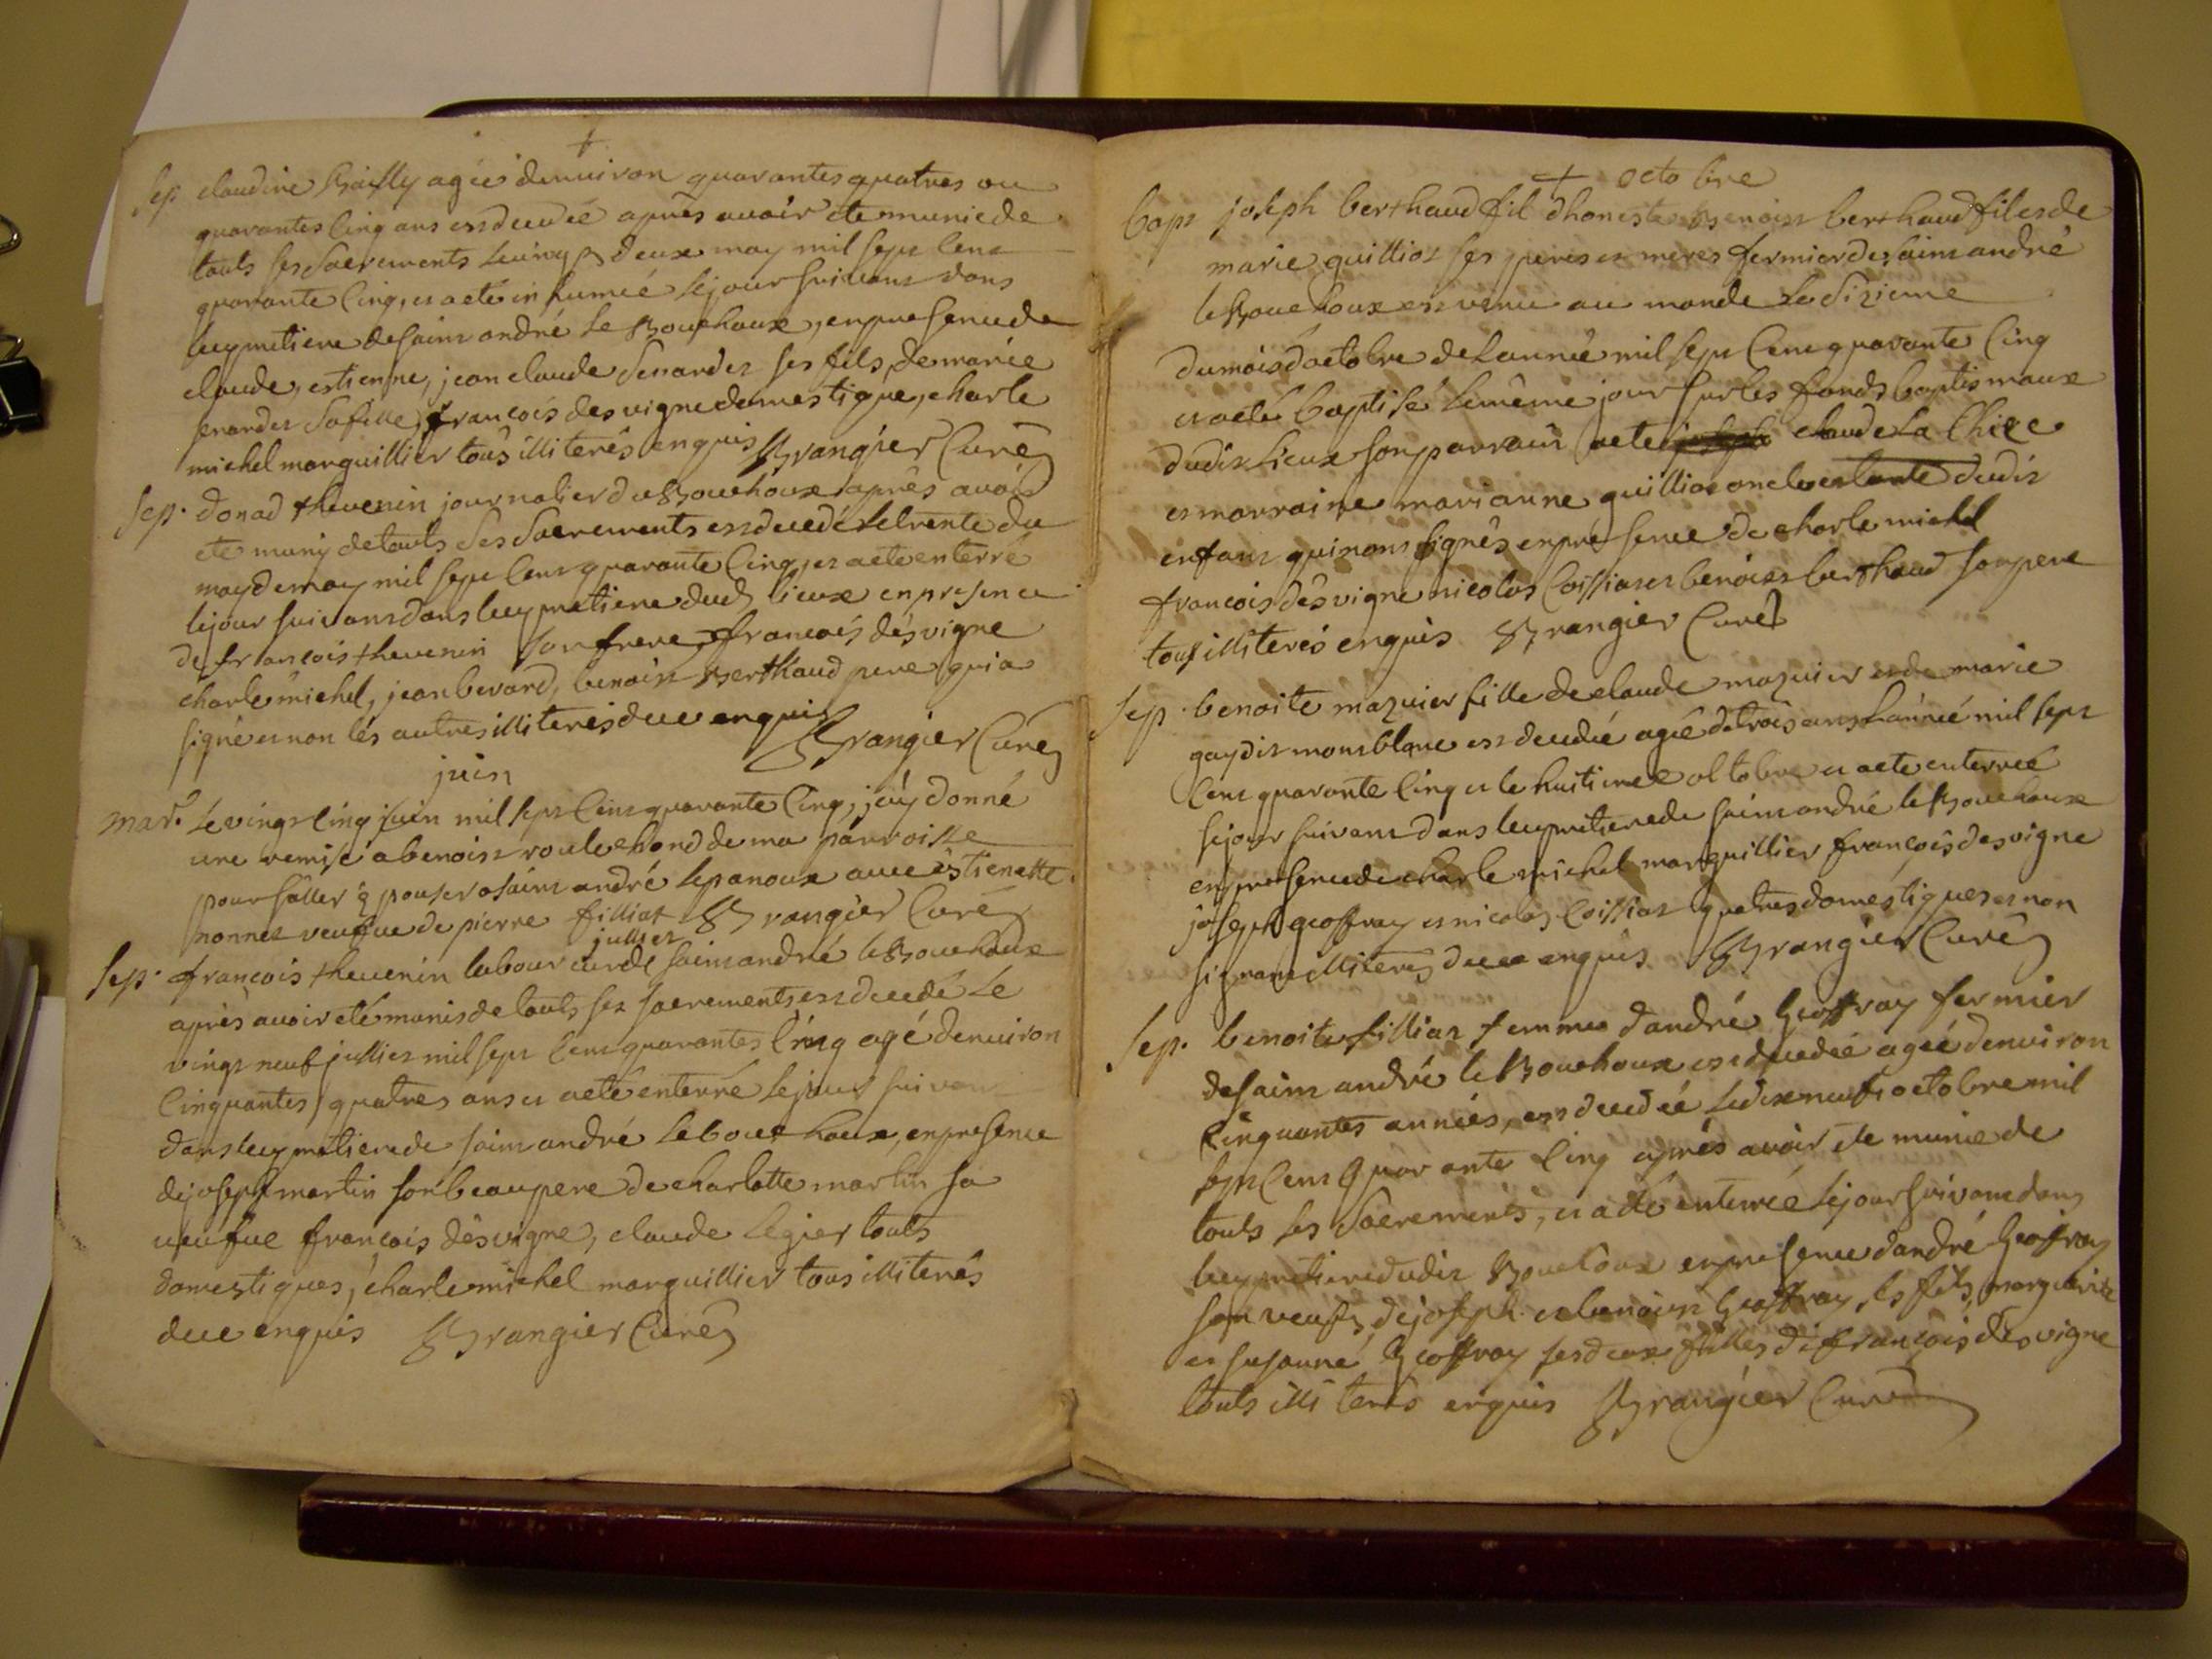 +
Sep claudine Bailly agéé denuiron quarantes quatres ou
quarantes cinq ans est decedéé après auoir ete munie de
touts ses Sacrements le vingt deux may mil sept cent
quarante cinq, et a eté inhumée le jour suivant dans
le cymetiere de saint andré le Bouchoux, en presence de
claude, estienne, jean claude Senardet ses fils, de marie
senardet sa fille, francois desvigne domestique, charle
michel marguillier tous illiterés enquis Brangier Curé
Sep. donad thevenin journalier du Bouchoux après avoir
ete muny de touts ses Sacrements est decedé le trente du
moy de may mil sept cent quarante cinq, et a ete enterré
le jour suivant dans le cymetiere dud lieux en presence
de francois thevenin son frere, francois desvigne
charle michel, jean bevard, benoist Berthaud pere qui a
signé et non lés autres illiterés de ce enquis
Brangier Curé
juin
mar. Le vingt cinq juin mil sept cent quarante cinq, j'ay donné
une remise a benoist roulechond de ma parroisse
pour saller épouser a saint andré le panoux avec estienette
monnet veufue de pierre filliat Brangier Curé
jullet
Sep. francois thevenin laboureur de saint andré le Bouchoux
après auoir eté munis de touts ses sacrements est decedé le
vingt neuf jullet mil sept cent quarantes cinq agé denuiron
cinquantes quatres ans et a eté enterré le jour suivan
dans le cymetiere de saint andré le bouchoux, en presence
de joseph martin son beaupere de charlotte martin sa
veufue francois désvigne, claude Legier touts
domestiques, charle michel marguillier tous illiterés
de ce enquis Brangier Curé
+ octobre
bapt joseph berthaud fil dhoneste Benoist berthaud fil et de
marie guilliot ses peres et meres fermier de saint andré
le Bouchoux est venu au monde le Sixieme
du mois doctobre de Lannée mil sept cent quarante cinq
et a eté baptisé le même jour sur les fonds baptismaux
dudit Lieux son parrain a ete joseph claude La Chize
et marraine marianne guilliot oncle et tante dudit
enfant qui nont signés en presence de charle michel
francois dèsvigne nicolas Coissiat et benoist berthaud son pere
tous illiterés enquis Brangier Curé
Sep. benoite mazuier fille de claude mazuier et de marie
gay dit montblanc est decedée agéé de trois ans Lannéé mil sept
cent quarante cinq et le huitieme octobre et a ete enterréé
le jour suivant dans le cymetiere de saint andré le Bouchoux
en presence de charle michel marguillier françois desvigne
joseph geoffray et nicolas Coissiat quatres domestiques et non
signant illiterés de ce enquis Brangier Curé
Sep. benoite filliat femme dandré Geoffray fermier
de saint andré le Bouchoux est decedéé agéé denuiron
cinquantes années, est decedéé le dixneuf octobre mil
sept cent Quarante cinq après avoir ete munie de
touts les Sacrements, et a eté enterréé le jour suivant dans
le cymetiere dudit Bouchoux en presence dandré Geoffray
son veuf, de joseph et benoist Geoffray ses fils, marguerite
et susanne Geoffray ses deux filles de françois, dèsvigne
touts illiterés enquis Brangier Curé